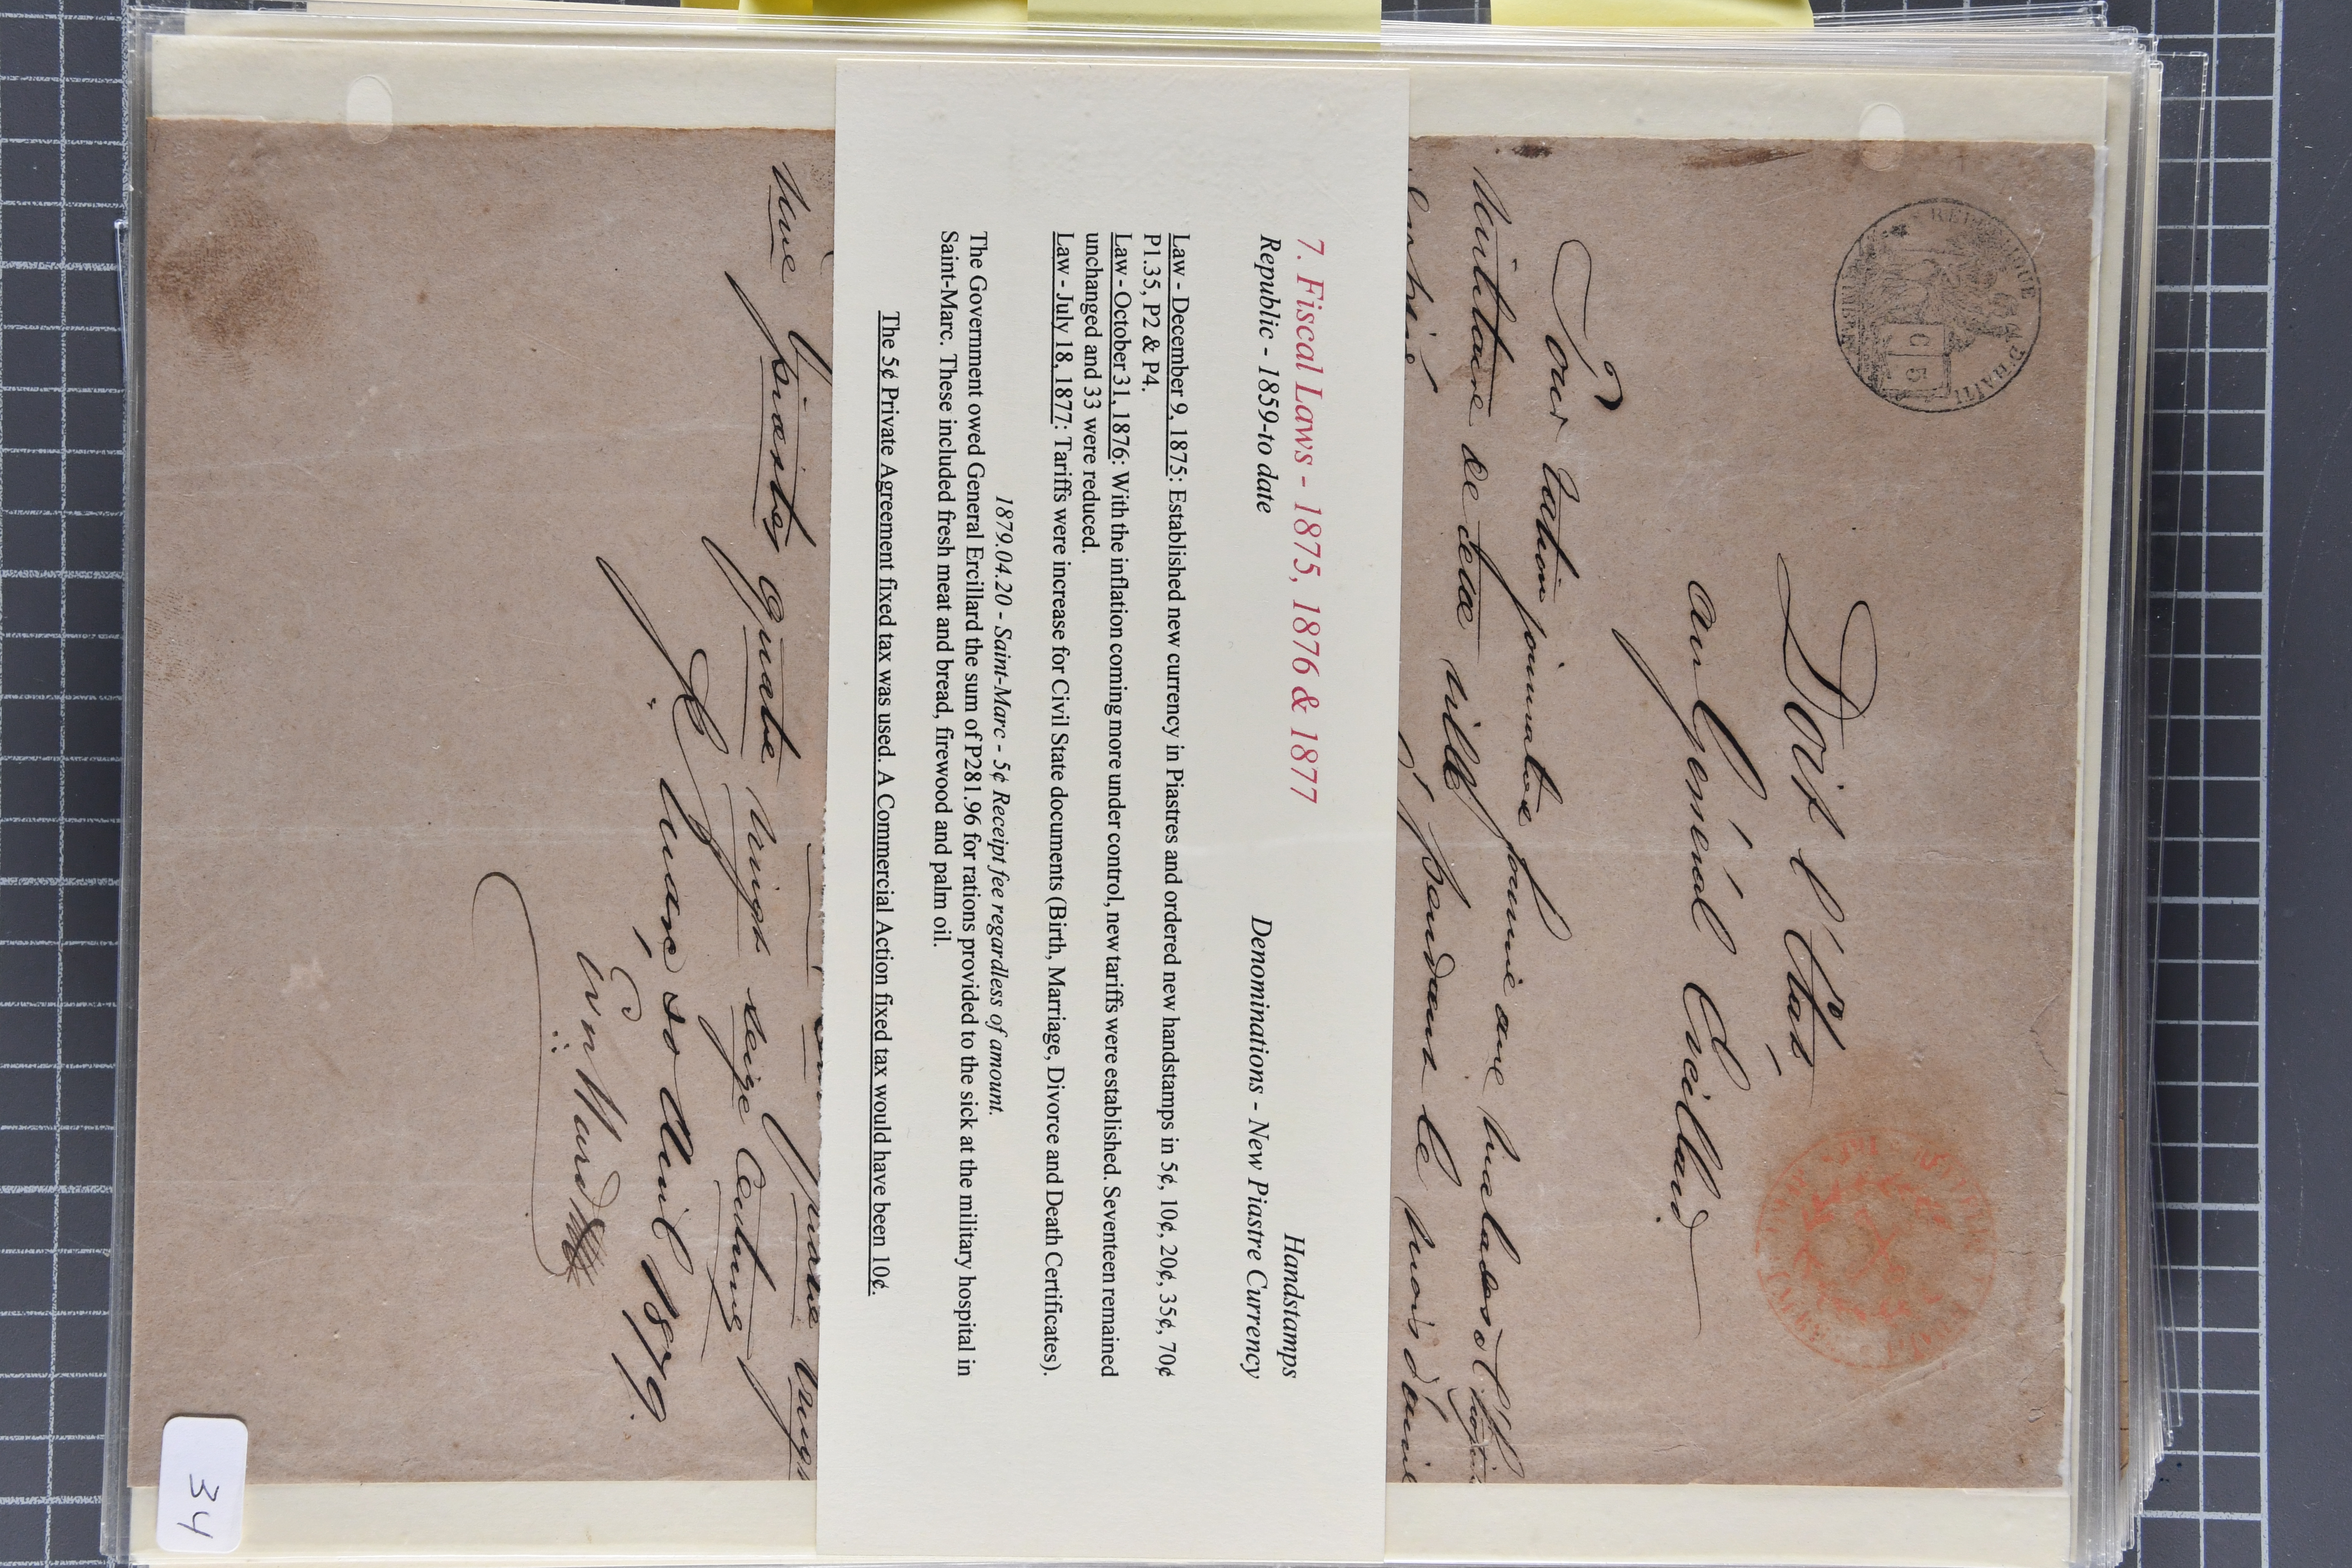 REPUBLIQUE D'HAITI
C 5
Doit l'Etat,
au Général Ercillard
Pour ration journalière fournie aux malades à l'hôpital
Militaire de cette ville, pendant le mois d'avril
7. Fiscal Laws - 1875, 1876 & 1877
Handstamps
Republic - 1859-to date
Denominations - New Piastre Currency
Law - December 9, 1875: Established new currency in Piastres and ordered new handstamps in 5¢, 10¢, 20¢, 35¢, 70¢
P1.35, P2 & P4.
Law - October 31, 1876: With the inflation coming more under control, new tariffs were established. Seventeen remained
unchanged and 33 were reduced.
Law - July 18, 1877: Tariffs were increase for Civil State documents (Birth, Marriage, Divorce and Death Certificates).
1879.04.20 - Saint-Marc - 5¢ Receipt fee regardless of amount.
The Government owed General Ercillard the sum of P281.96 for rations provided to the sick at the military hospital in
Saint-Marc. These included fresh meat and bread, firewood and palm oil.
The 5¢ Private Agreement fixed tax was used. A Commercial Action fixed tax would have been 10¢.
une piastres quatre vingt seize Centimes
St Marc, 20 Avril 1879.
34